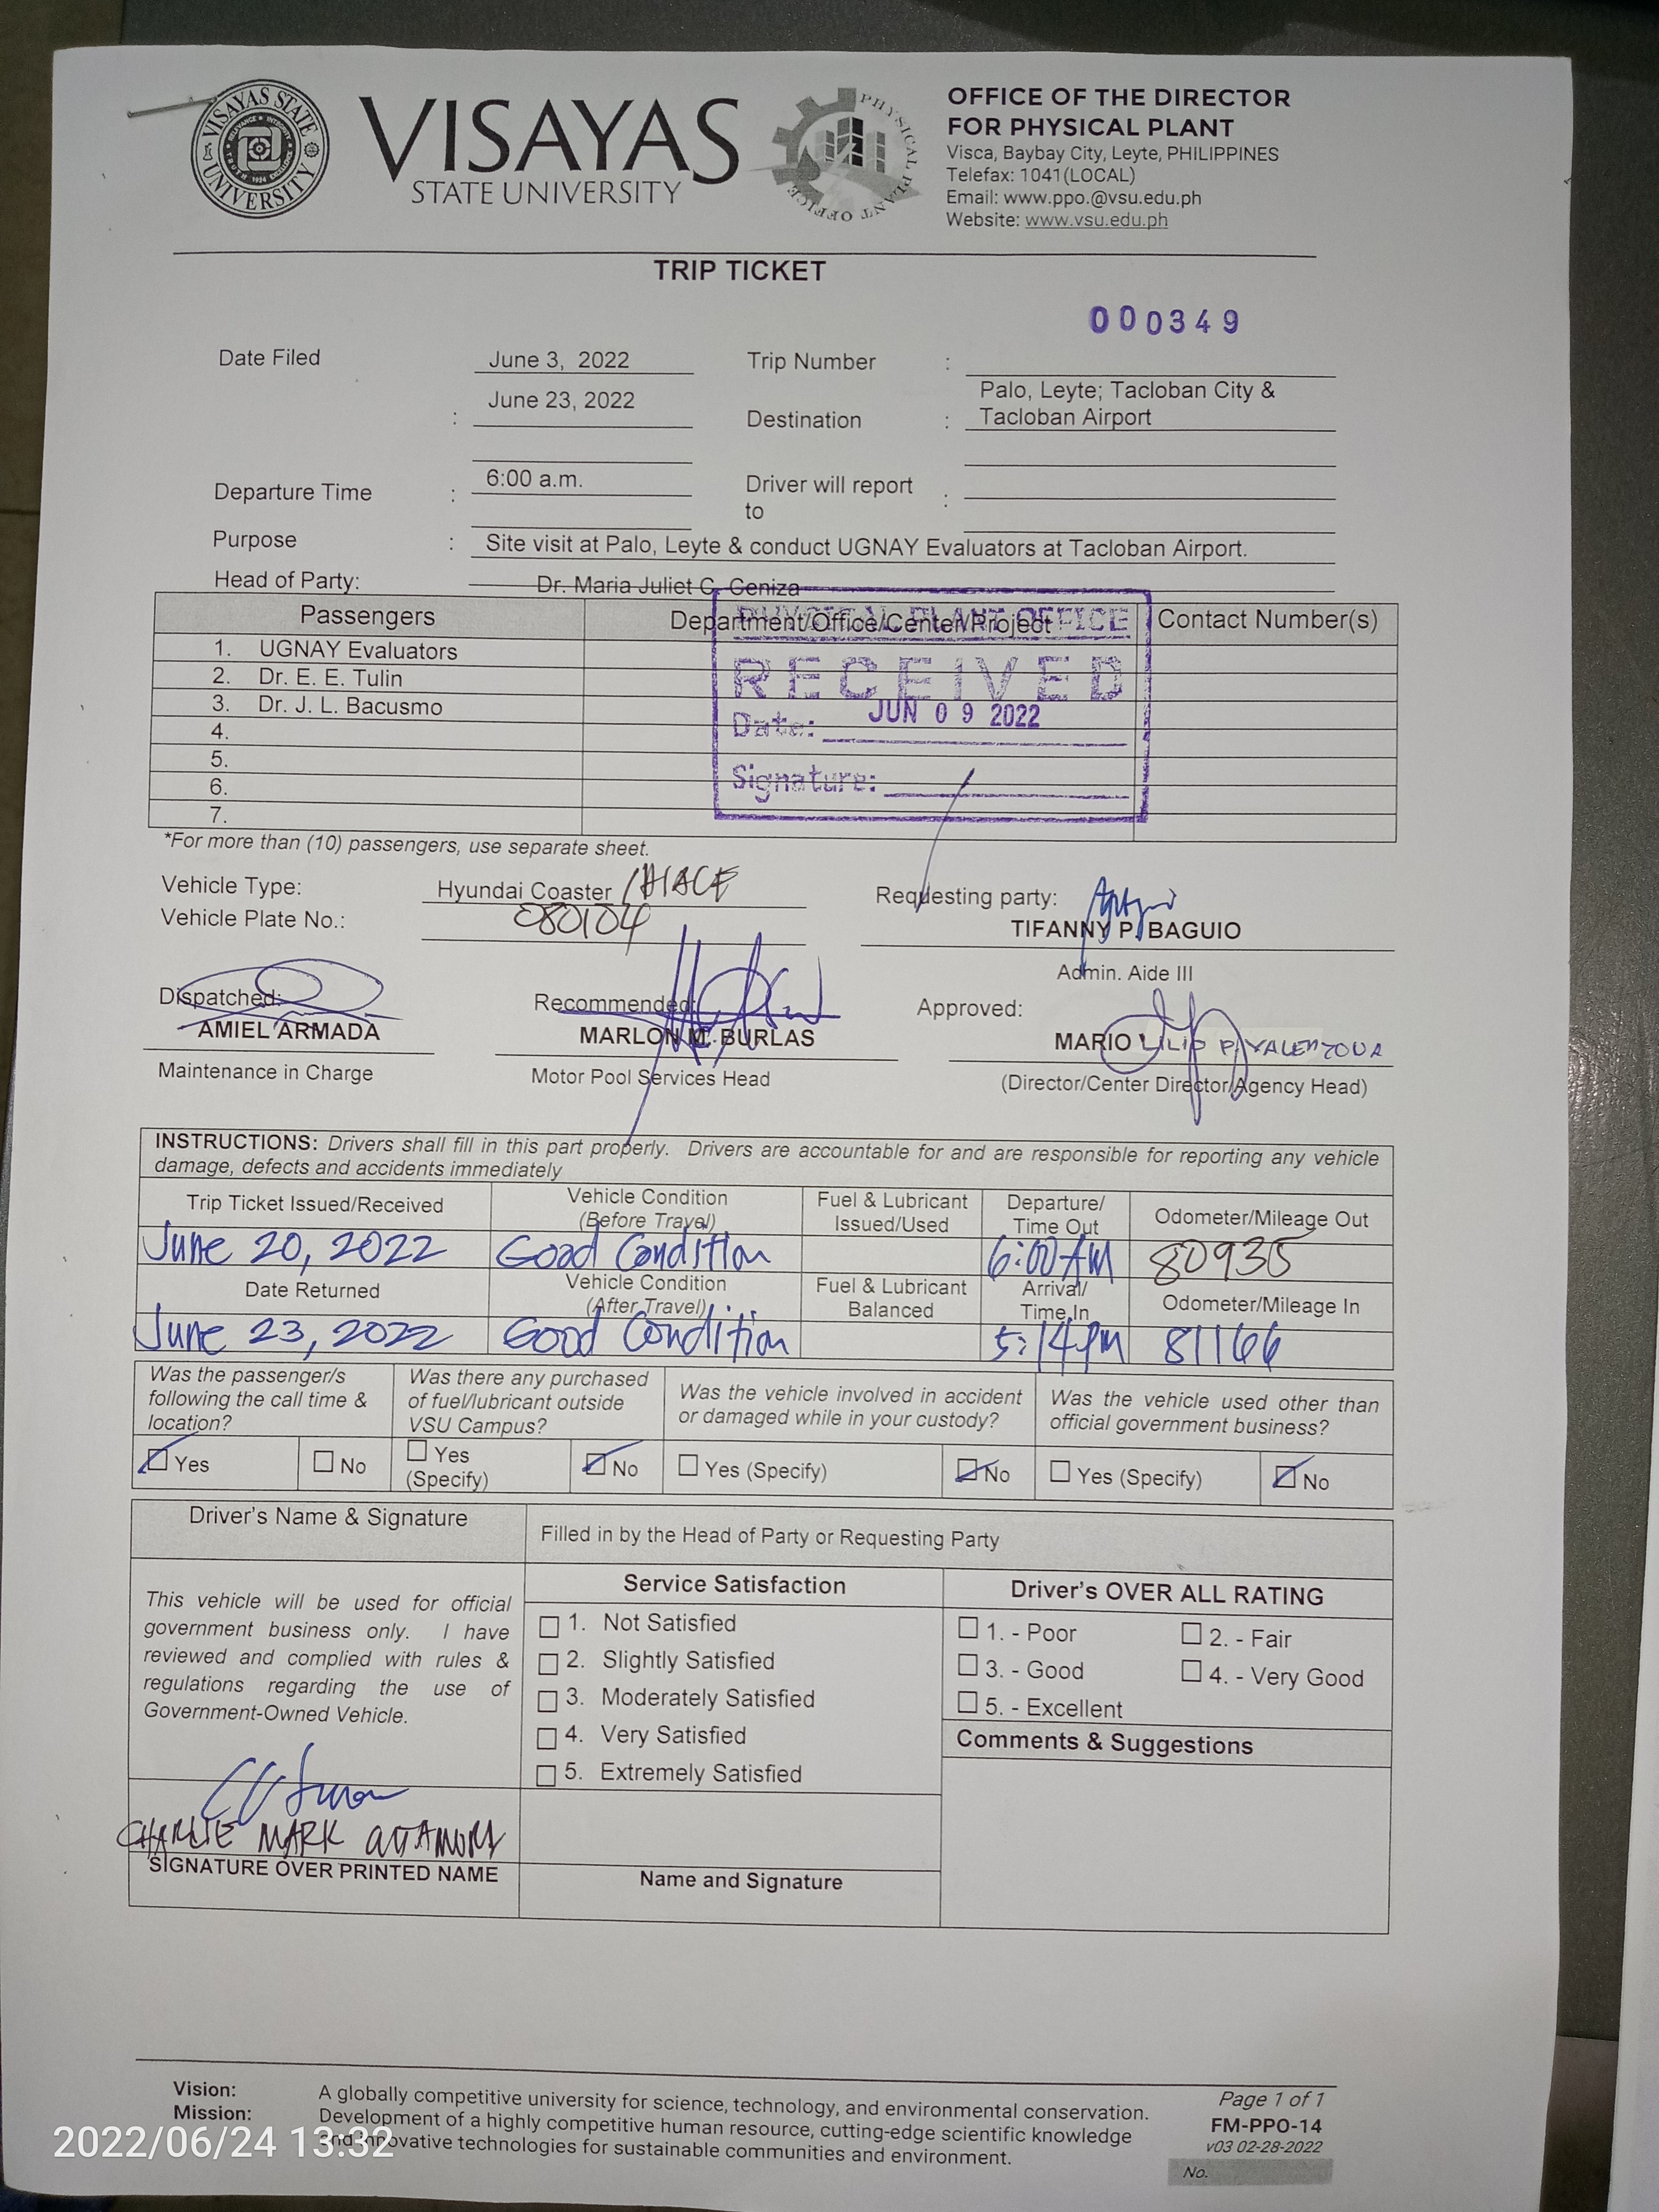 VISAYAS STATE UNIVERSITY
RELEVANCE INTEGRITY TRUTH 1924 EXCELLENCE
VISAYAS
STATE UNIVERSITY
PHYSICAL PLANT OFFICE
OFFICE OF THE DIRECTOR
FOR PHYSICAL PLANT
Visca, Baybay City, Leyte, PHILIPPINES
Telefax: 1041(LOCAL)
Email: www.ppo.@vsu.edu.ph
Website: www.vsu.edu.ph
TRIP TICKET
000349
Date Filed June 3, 2022 Trip Number :
: June 23, 2022 Destination : Palo, Leyte; Tacloban City &
Tacloban Airport
Departure Time : 6:00 a.m. Driver will report
to :
Purpose : Site visit at Palo, Leyte & conduct UGNAY Evaluators at Tacloban Airport.
Head of Party: Dr. Maria Juliet C. Ceniza
Passengers Department/Office/Center/Project Contact Number(s)
1. UGNAY Evaluators
2. Dr. E. E. Tulin
3. Dr. J. L. Bacusmo
4.
5.
6.
7.
PHYSICAL PLANT OFFICE
RECEIVED
Date: JUN 09 2022
Signature:
*For more than (10) passengers, use separate sheet.
Vehicle Type: Hyundai Coaster /HIACE
Vehicle Plate No.: 080104
Requesting party:
TIFANNY P. BAGUIO
Admin. Aide III
Dispatched: Recommended: Approved:
AMIEL ARMADA MARLON M. BURLAS MARIO LILIO P. VALENZONA
Maintenance in Charge Motor Pool Services Head (Director/Center Director/Agency Head)
INSTRUCTIONS: Drivers shall fill in this part properly. Drivers are accountable for and are responsible for reporting any vehicle
damage, defects and accidents immediately
Trip Ticket Issued/Received Vehicle Condition (Before Travel) Fuel & Lubricant Issued/Used Departure/ Time Out Odometer/Mileage Out
June 20, 2022 Good Condition 6:00 AM 80935
Date Returned Vehicle Condition (After Travel) Fuel & Lubricant Balanced Arrival/ Time In Odometer/Mileage In
June 23, 2022 Good Condition 5:14 PM 81166
Was the passenger/s
following the call time &
location?
Was there any purchased
of fuel/lubricant outside
VSU Campus?
Was the vehicle involved in accident
or damaged while in your custody?
Was the vehicle used other than
official government business?
Yes No Yes (Specify) No Yes (Specify) No Yes (Specify) No
Driver's Name & Signature
Filled in by the Head of Party or Requesting Party
This vehicle will be used for official
government business only. I have
reviewed and complied with rules &
regulations regarding the use of
Government-Owned Vehicle.
Service Satisfaction
1. Not Satisfied
2. Slightly Satisfied
3. Moderately Satisfied
4. Very Satisfied
5. Extremely Satisfied
Driver's OVER ALL RATING
1. - Poor 2. - Fair
3. - Good 4. - Very Good
5. - Excellent
Comments & Suggestions
CHARLIE MARK
SIGNATURE OVER PRINTED NAME
Name and Signature
Vision: A globally competitive university for science, technology, and environmental conservation.
Mission: Development of a highly competitive human resource, cutting-edge scientific knowledge
and innovative technologies for sustainable communities and environment.
Page 1 of 1
FM-PPO-14
v03 02-28-2022
No.
2022/06/24 13:32